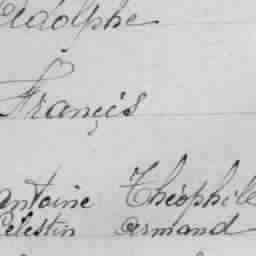 Adolphe
François
Antoine Théophile
Célestin Armand